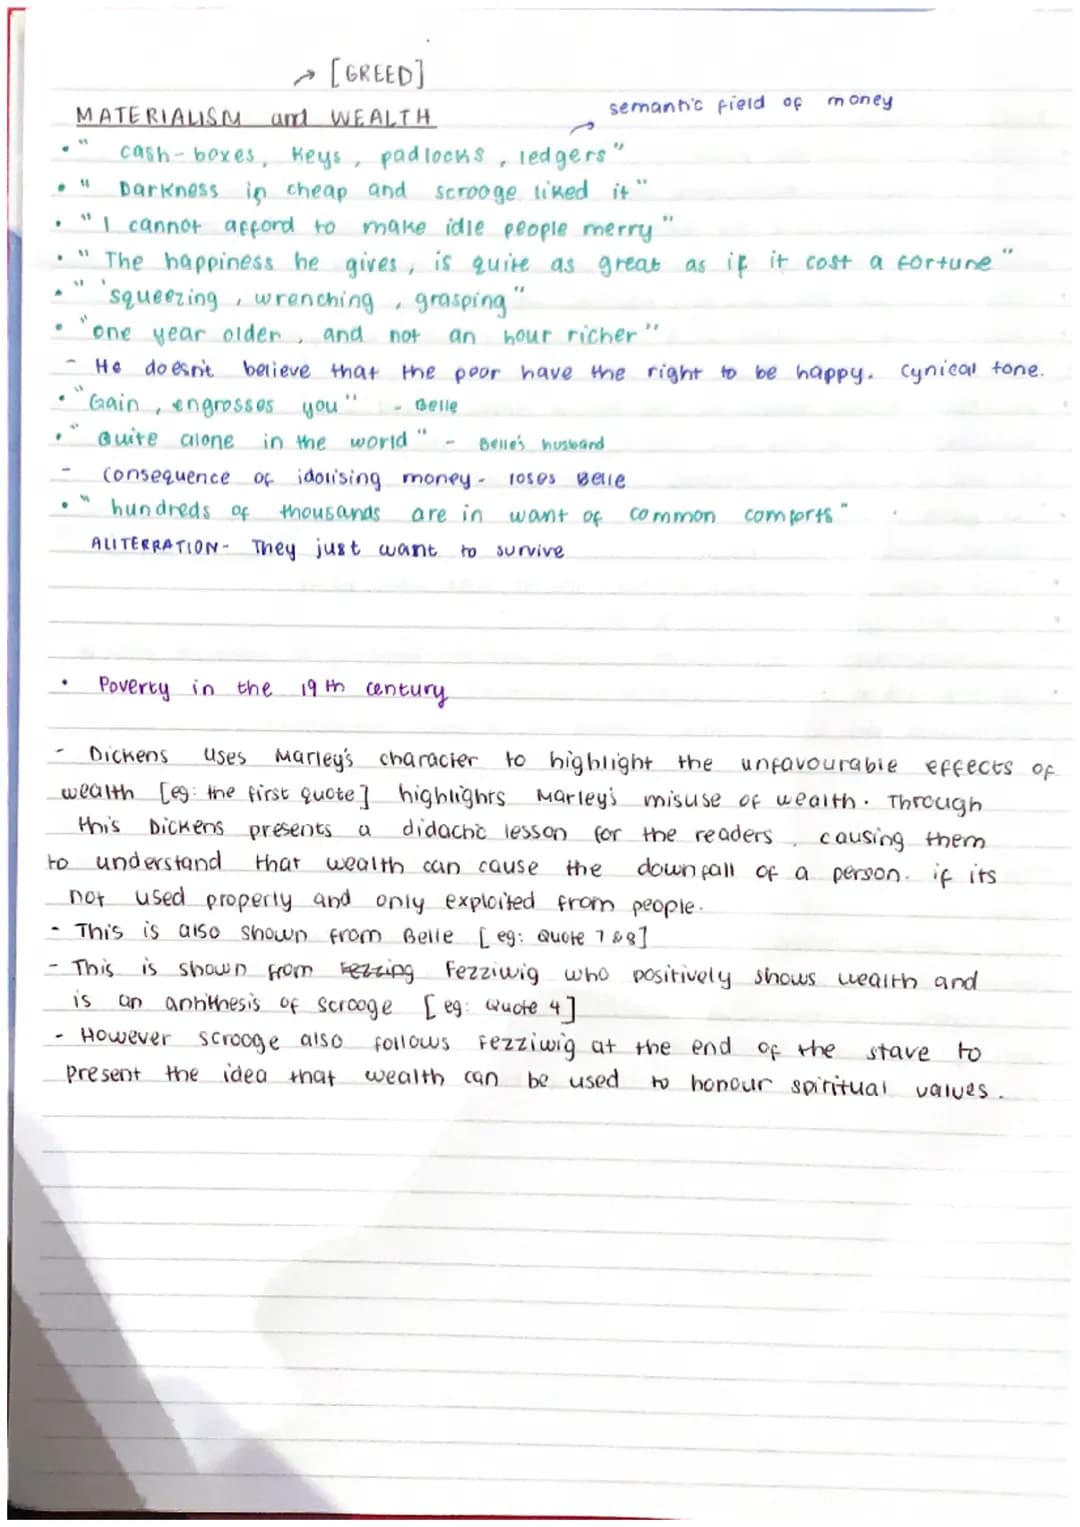 → [GREED]
MATERIALISM and WEALTH
semantic field of money
• " cash-boxes, Keys, padlocks, ledgers"
• " Darkness is cheap and scrooge liked it"
• " I cannot afford to make idle people merry"
• " The happiness he gives, is quite as great as if it cost a fortune"
• " 'squeezing, wrenching, grasping"
• "one year older, and not an hour richer"
- He doesn't believe that the poor have the right to be happy. Cynical tone.
• "Gain, engrosses you" - Belle
• " Quite alone in the world" - Belle's husband
- Consequence of idolising money - loses Belle
• " hundreds of thousands are in want of common comforts"
ALITERRATION - They just want to survive
• Poverty in the 19th century
- Dickens uses Marley's character to highlight the unfavourable effects of
wealth [eg: the first quote] highlights Marley's misuse of wealth. Through
this Dickens presents a didactic lesson for the readers, causing them
to understand that wealth can cause the downfall of a person. if its
not used properly and only exploited from people.
- This is also shown from Belle [eg: Quote 7 & 8]
- This is shown from Fezzing Fezziwig who positively shows wealth and
is an antithesis of Scrooge [eg: Quote 4]
- However scrooge also follows Fezziwig at the end of the stave to
present the idea that wealth can be used to honour spiritual values.